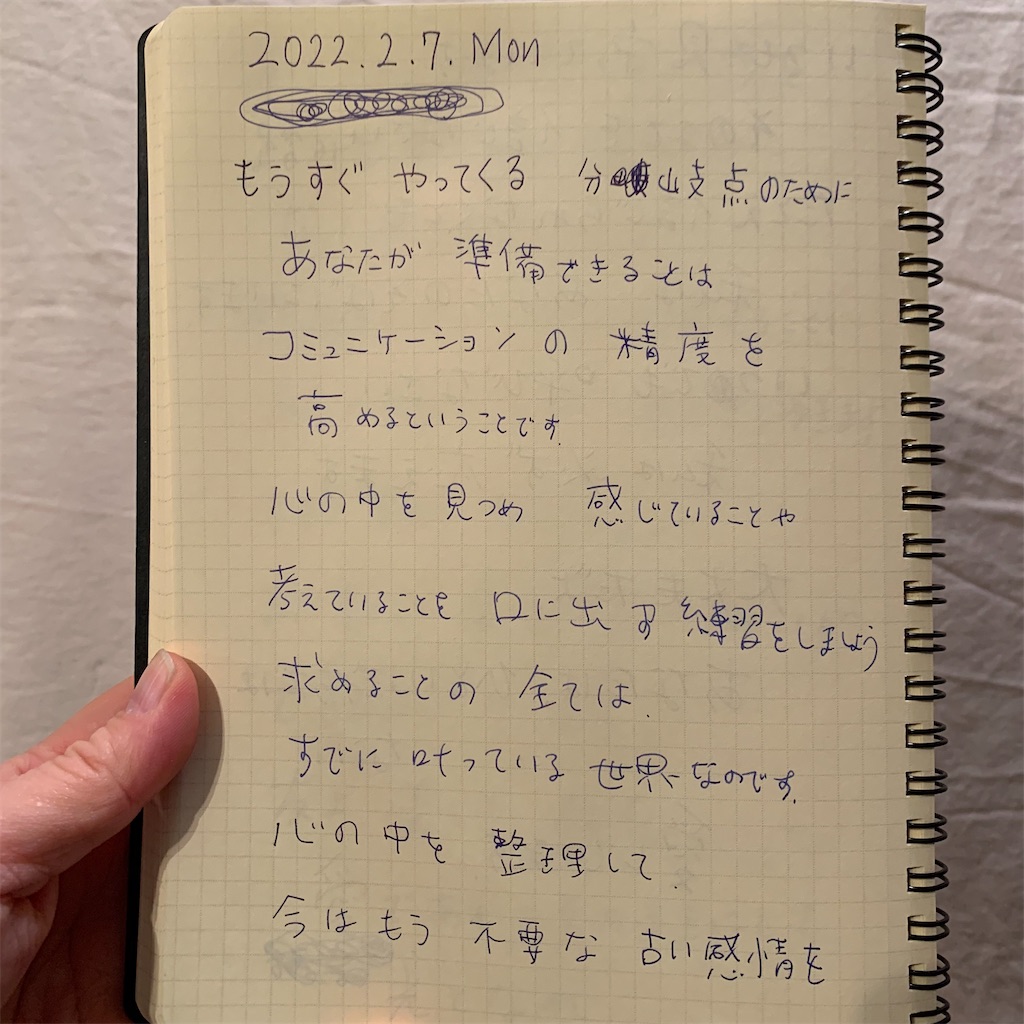 2022.2.7. Mon
もうすぐ やってくる 分岐点のために
あなたが 準備できることは
コミュニケーション の 精度を
高めるということです。
心の中を 見つめ 感じていることや
考えていることを 口に出す 練習をしましょう
求めることの 全ては、
すでに 叶っている 世界なのです。
心の中を 整理して、
今は もう 不要な 古い感情を